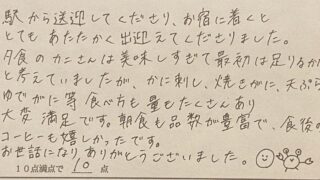 駅から送迎してくださり、お宿に着くと
とても あたたかく 出迎えてくださりました。
夕食のカニさんは美味しすぎて最初は足りるか
と考えていましたが、かに刺し、焼きがに、天ぷら
ゆでがに等 食べ方も量もたくさんあり
大変 満足です。朝食も品数が豊富で、食後の
コーヒーも嬉しかったです。
お世話になり ありがとうございました。
10点満点で 10 点